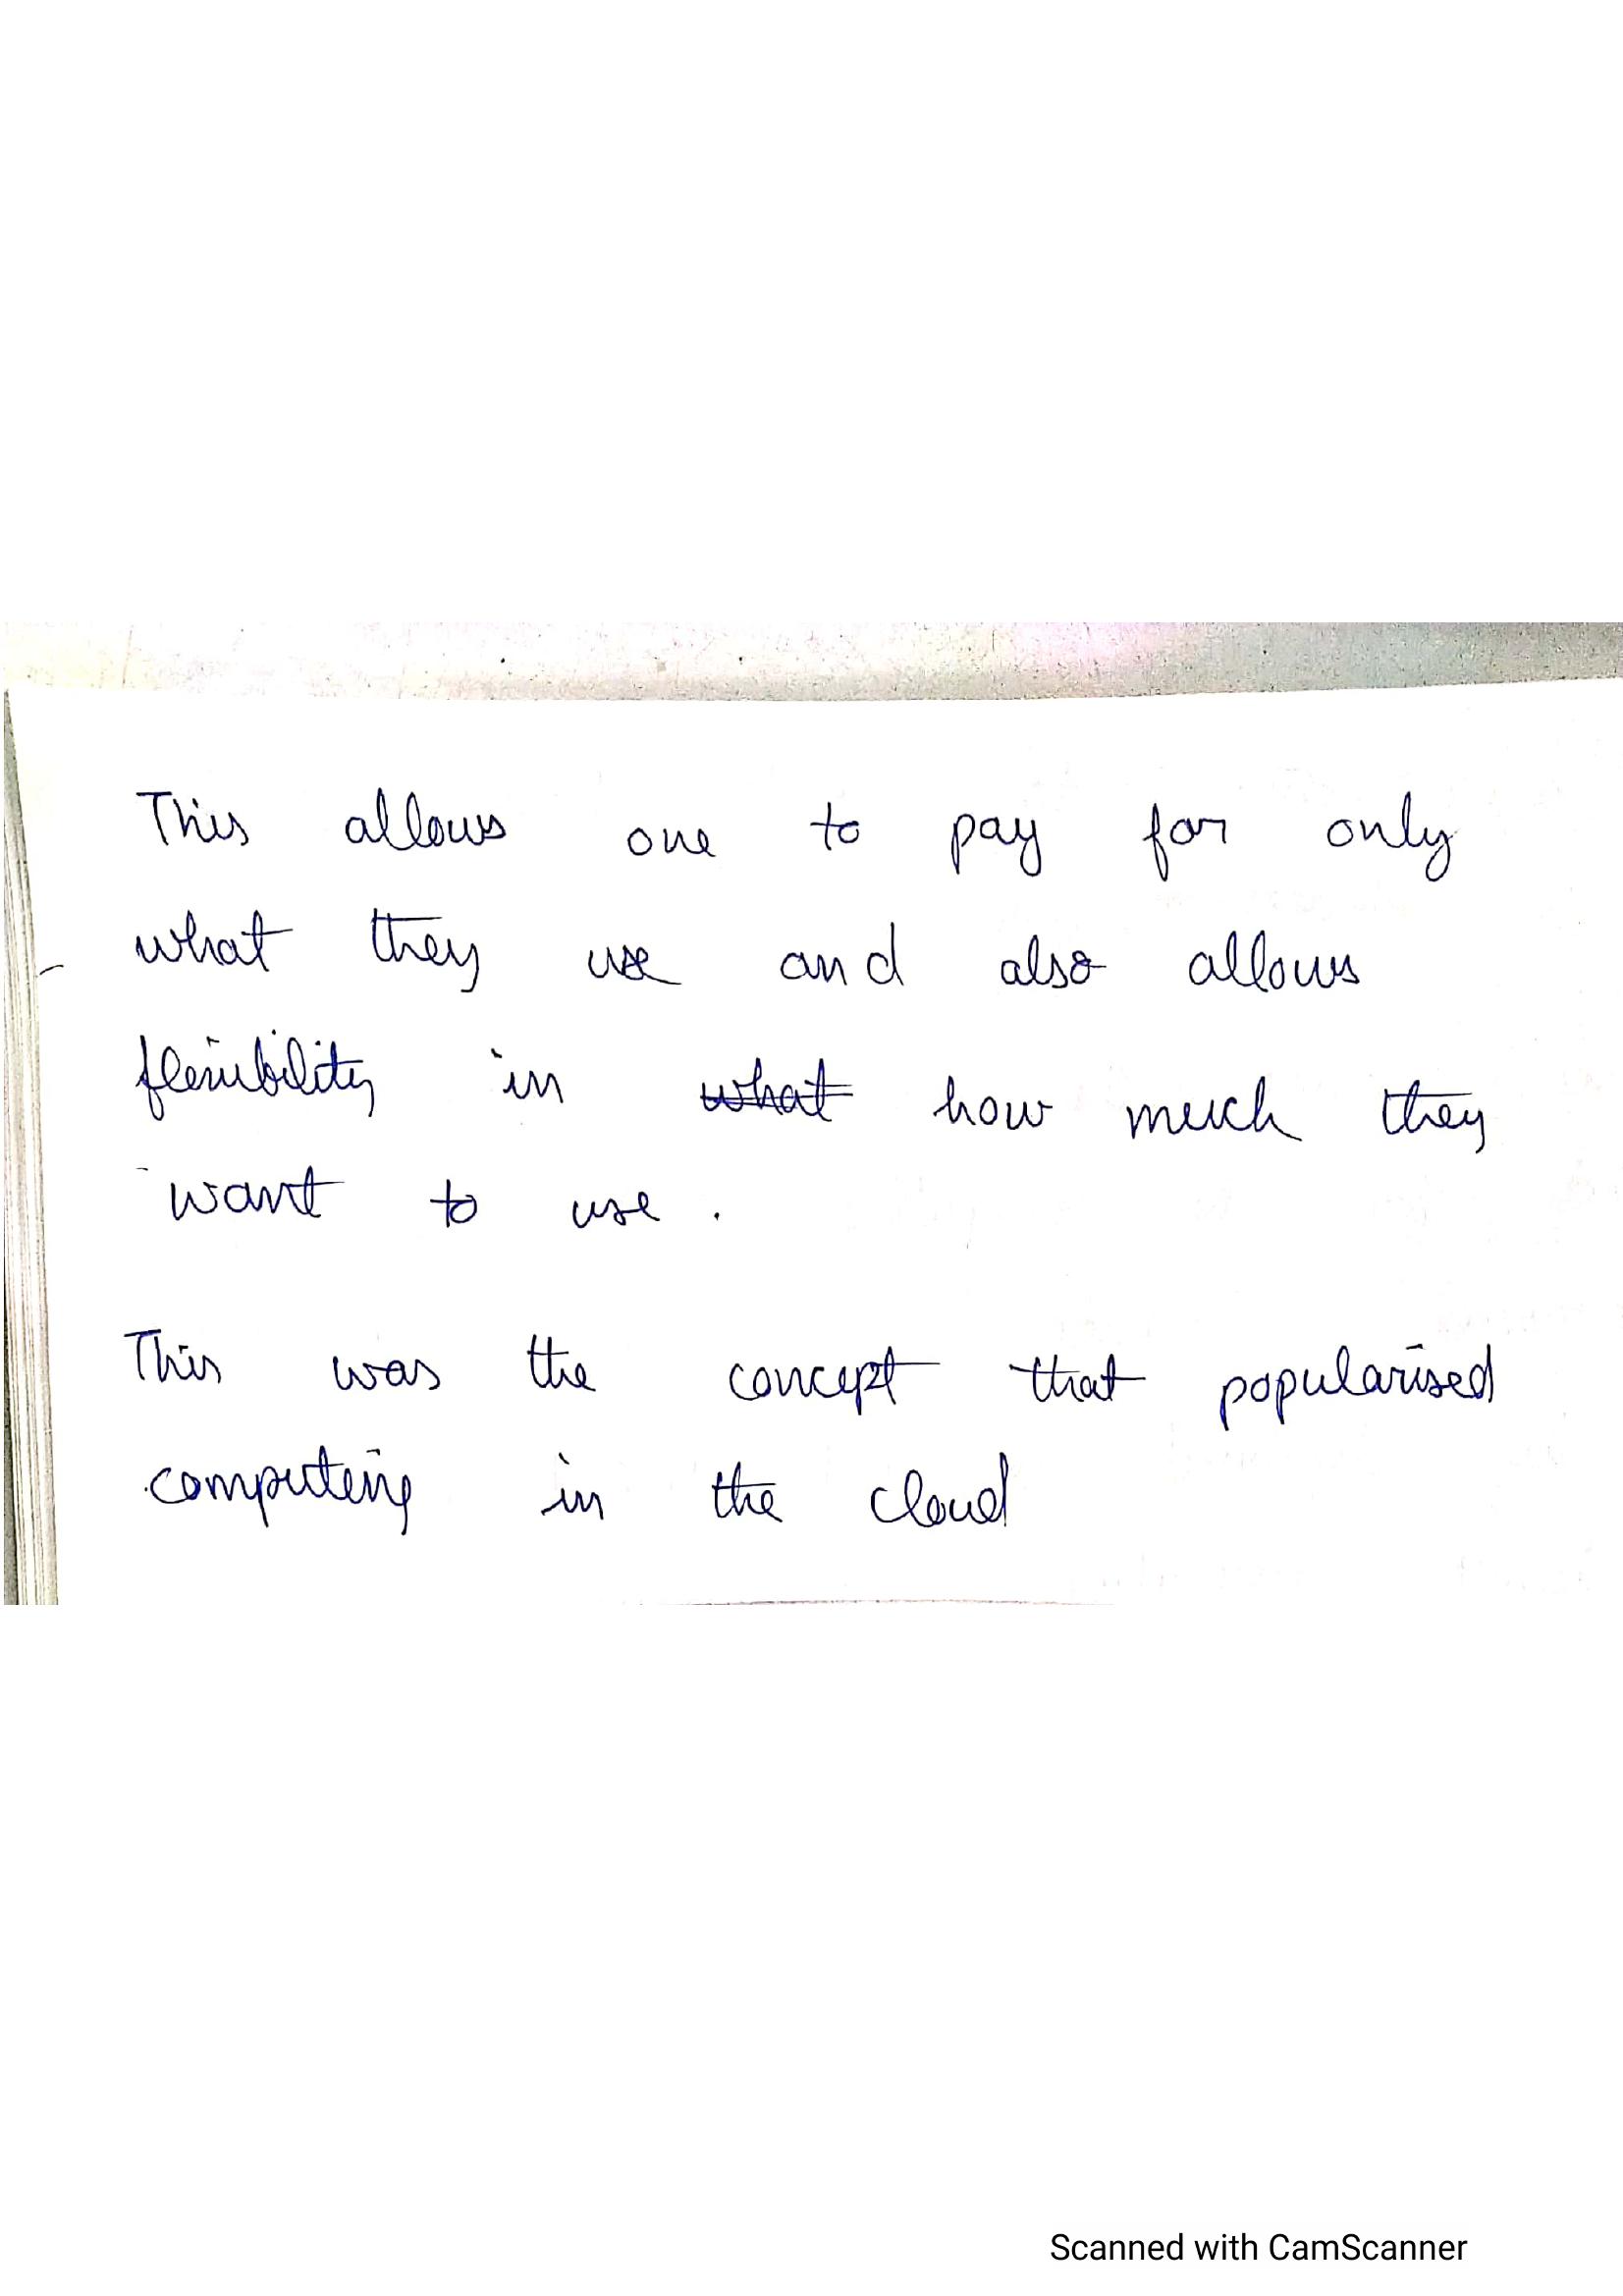 This allows one to pay for only
what they use and also allows
flexibility in ~~what~~ how much they
want to use.
This was the concept that popularised
computing in the cloud
Scanned with CamScanner